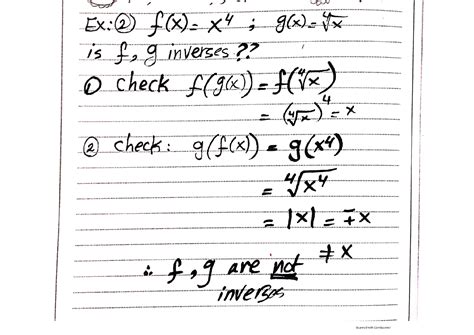 Ex:② f(x) = x⁴ ; g(x) = ∜x
is f, g inverses??
① check f(g(x)) = f(∜x)
= (∜x)⁴ = x
② check: g(f(x)) = g(x⁴)
= ∜x⁴
= |x| = ∓x
≠ x
∴ f, g are not
inverses